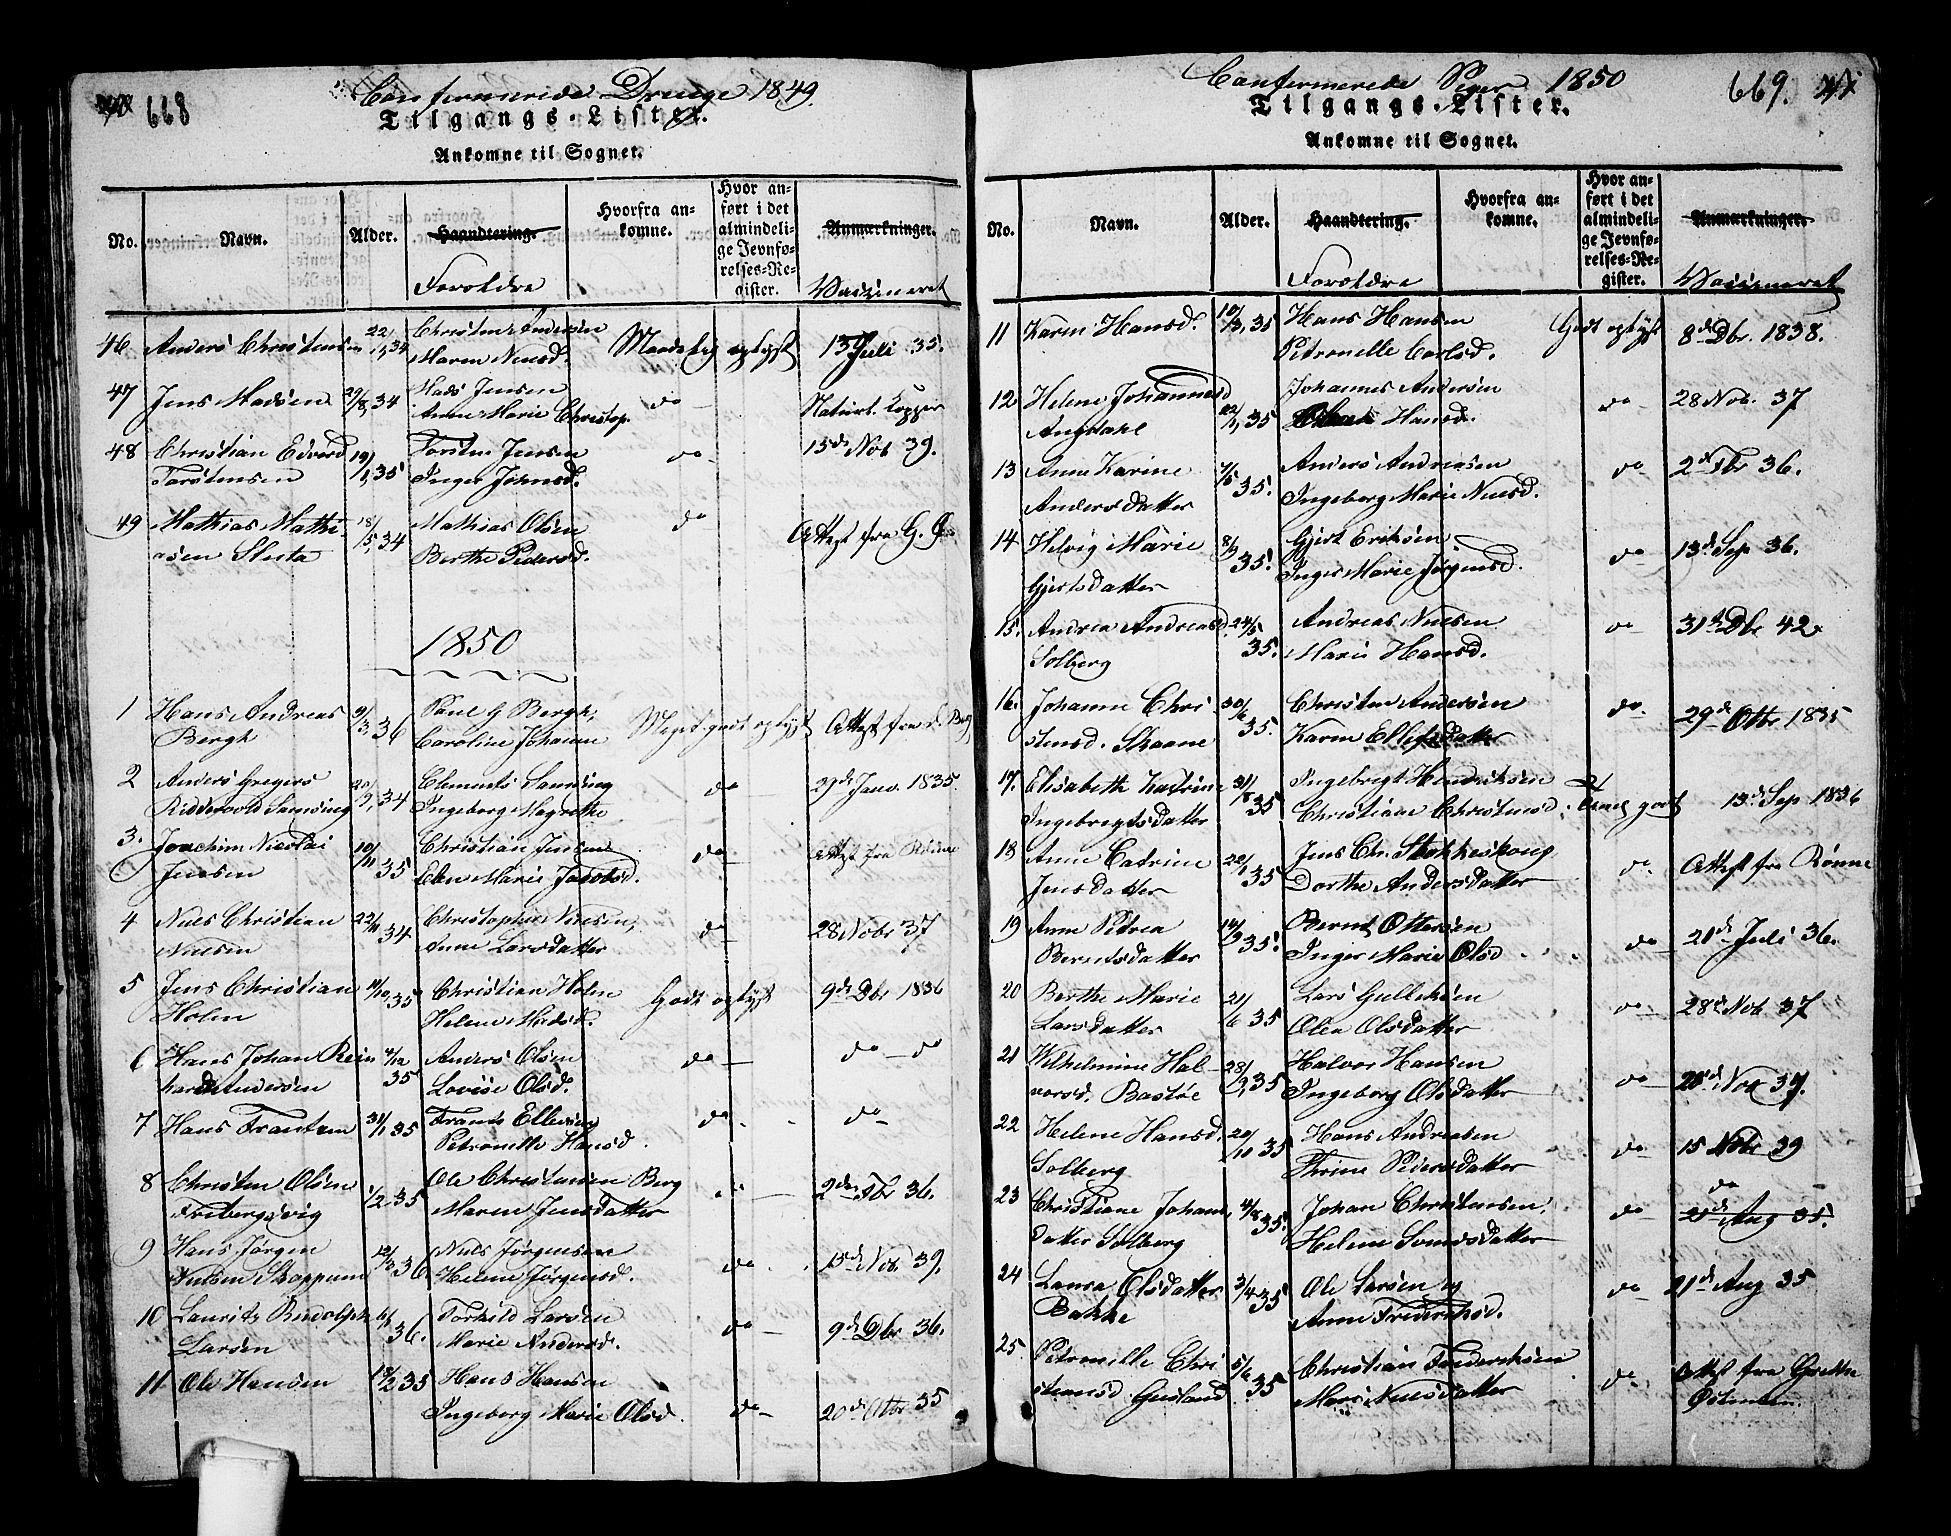 668
Confirmerede Drenge 1849.
Tilgangs-Lister.
Ankomne til Sognet.
No. Navn. Alder. Haandtering. Forældre Hvorfra ankomne. Hvor anført i det almindelige Jevnførelses-Register. Anmærkninger. Vaccineret
46 Anders Christensen 22/11 34 Christen Andersen Maadelig oplyst 13 Juli 35.
Maren Nielsd.
47 Jens Madsen 29/8 34 Mads Jensen do Naturl. Kopper
Anne Marie Christop.
48 Christian Edvard 19/1 35 Torsten Jensen do 15de Nob 39.
Torstensen Inger Johnsd.
49 Mathias Mathi- 18/5 34 Mathias Olsen do Attest fra G.
asen Sletta Berthe Pedersd.
1850
1 Hans Andreas 9/3 36 Paul G Bergh, Meget godt oplyst Attest fra d. Berg
Bergh Caroline Johanne
2 Anders Gregers 20/9 34 Clements Sansing do 29de Janv. 1835.
Riddervold Sansing Ingeborg Magrethe
3. Joachim Nicolai 10/11 35 Christian Jensen do Attest fra
Jensen Elen Marie Jacobsd.
4 Niels Christian 22/11 34 Christopher Nielsen, do 28 Nobr 37
Nielsen Anne Larsdatter
5 Jens Christian 11/10 35 Christian Holen Godt oplyst 9de Dbr 1836
Holen Helene Madsd.
6 Hans Johan Rein 4/12 35 Anders Olsen do do do
hardt Andersen Lovise Olsd.
7 Hans Frantzen 31/1 35 Frants Ellevsen do do
Petronelle Hansd.
8 Christen Olsen 1/2 35 Ole Christensen Berg do 2den Fbr 36.
Fribergsvig Maren Jensdatter
9 Hans Jørgen 12/3 36 Niels Jørgensen do 15de Nob 39.
Nielsen Skoppum Helene Jørgensd.
10 Lauritz Rudolph 6/1 36. Torkild Larsen do 9de Dbr 36.
Larsen Marie Andersd.
11 Ole Hansen 18/2 35 Hans Hansen do 20de Otbr 35
Ingeborg Marie Olsd.
Confirmerede Piger 1850
669.
Tilgangs-Lister.
Ankomne til Sognet.
No. Navn. Alder. Haandtering. Forældre Hvorfra ankomne. Hvor anført i det almindelige Jevnførelses-Register. Anmærkninger. Vaccineret
11 Karen Hansd. 10/3 35 Hans Hansen Godt oplyst 8de Dbr. 1838.
Petronelle Carlsd.
12 Helene Johannesd 22/1 35 Johannes Andersen do 28 Nob. 37
Hansd.
13 Anne Karine 7/5 35. Anders Andreasen do 2de Fbr 36.
Andersdatter Ingeborg Marie Nielsd.
14 Helvig Marie 8/9 35. Gjert Eriksen do 13de Sep 36.
Gjertsdatter Inger Marie Jørgensd.
15. Andrea Andreasd. 24/5 35. Andreas Nielsen do 31te Dbr 42.
Solberg Marie Hansd.
16. Johanne Chri 30/6 35. Christen Andersen do. 29de Otbr 1835
stensd. Skaane Karen Ellefsdatter
17. Elisabeth Katrine 31/8 35 Ingebregt Hendriksen Temel. godt 13de Sep 1836
Ingebregtsdatter Christiane Christensd.
18 Anne Catrine 22/1 35 Jens Chr. Stokkeskoug do. Attest fra Rønne
Jensdatter Dorthe Andersdatter
19 Anne Petrea 14/9 35. Bernt Ottersen do 21de Juli 36.
Berntsdatter Inger Marie Olsd
20 Berthe Marie 21/6 35 Lars Gulliksen do 28de Nob 37
Larsdatter Olea Olsdatter
21 Wilhelmine Hal- 28/2 35 Halvor Hansen do 28de Nob 37.
vorsd. Bastøe Ingeborg Olsdatter
22 Helene Hansd. 20/10 35 Hans Andreasen do 15 Nobr 39
Solberg Thrine Pedersdatter
23 Christiane Johans 14/8 35. Johan Christensen. do do
datter Solberg Helene Svendsdatter 21de Aug 35.
24 Laura Olsdatter 3/4 35 Ole Larsen og do 21de Aug 35
Bakke Anne Frederiksd.
25. Petronelle Chri 5/6 35 Christian Frederiksen do. Attest fra Grethe
stiansd. Marie Nielsdatter Østensen.